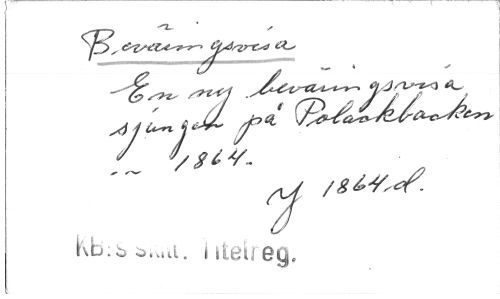 Beväringsvisa
En ny beväringsvisa
sjungen på Polackbacken
... 1864.
Y 1864.d.
KB:s skill. Titelreg.